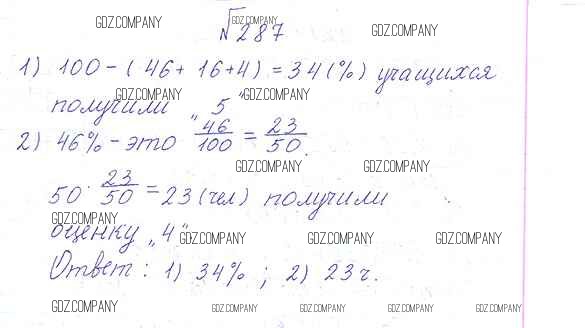 GDZ.COMPANY GDZ.COMPANY GDZ.COMPANY
№287
1) 100 - (46 + 16 + 4) = 34 (%) учащихся
GDZ.COMPANY GDZ.COMPANY
получили „5"
2) 46% - это 46/100 = 23/50.
GDZ.COMPANY GDZ.COMPANY
50 · 23/50 = 23 (чел) получили
GDZ.COMPANY
оценку „4".
GDZ.COMPANY GDZ.COMPANY GDZ.COMPANY
Ответ: 1) 34%; 2) 23 ч.
GDZ.COMPANY GDZ.COMPANY GDZ.COMPANY GDZ.COMPANY GDZ.COMPANY